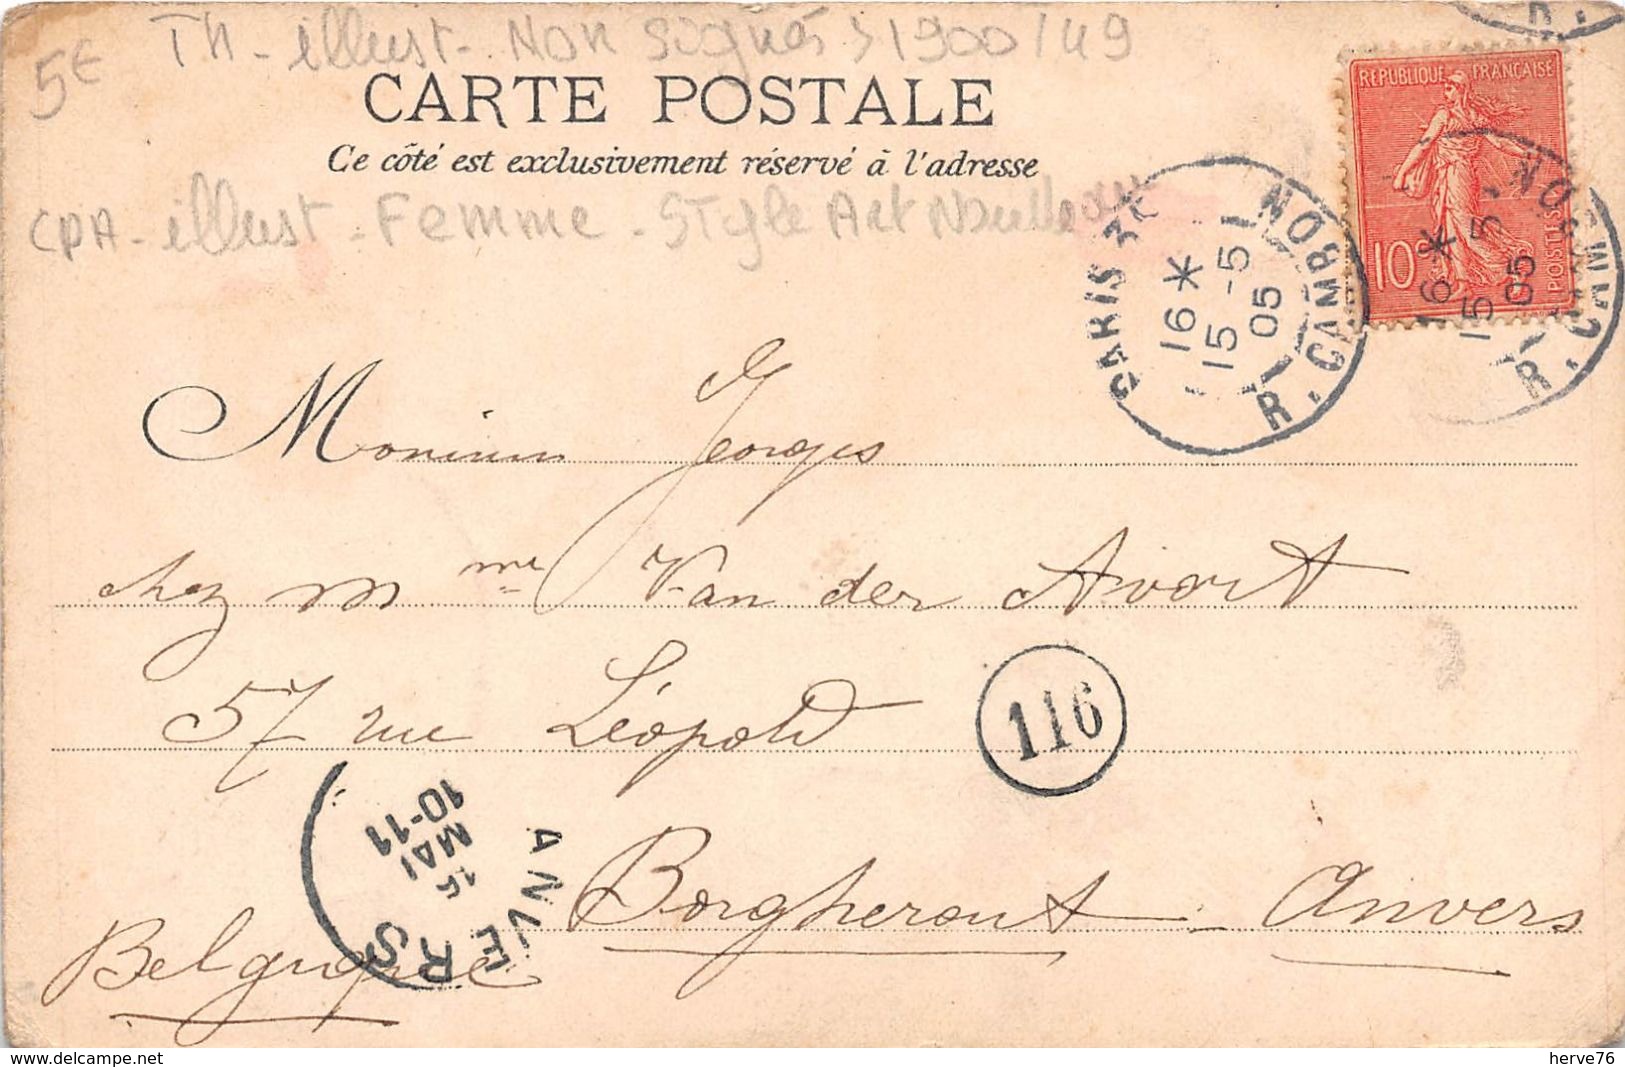 Th - illust - Non signés > 1900/49
5€
CARTE POSTALE
Ce côté est exclusivement réservé à l'adresse
CPA - illust - Femme - Style Art Nouveau
REPUBLIQUE FRANÇAISE
10c
POSTES
PARIS
16 *
15 -5
05
R. CAMBRON
16 *
15 5
05
R. CAMBRON
R.
Monsieur Georges
chez Mme Van der Avort
57 rue Léopold
116
Borgherout - Anvers
Belgique
ANVERS
MAI
10-11
herve76